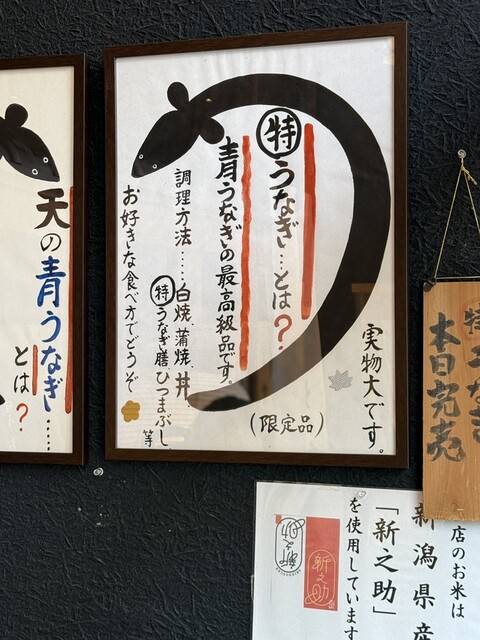 特うなぎ…とは？
青うなぎの最高級品です。
調理方法……白焼、蒲焼、丼、
特うなぎ膳、ひつまぶし、等
お好きな食べ方でどうぞ
実物大です。
（限定品）
天の青うなぎ……
とは？
特うなぎ
本日完売
店のお米は
新潟県産
「新之助」
を使用しています
新之助